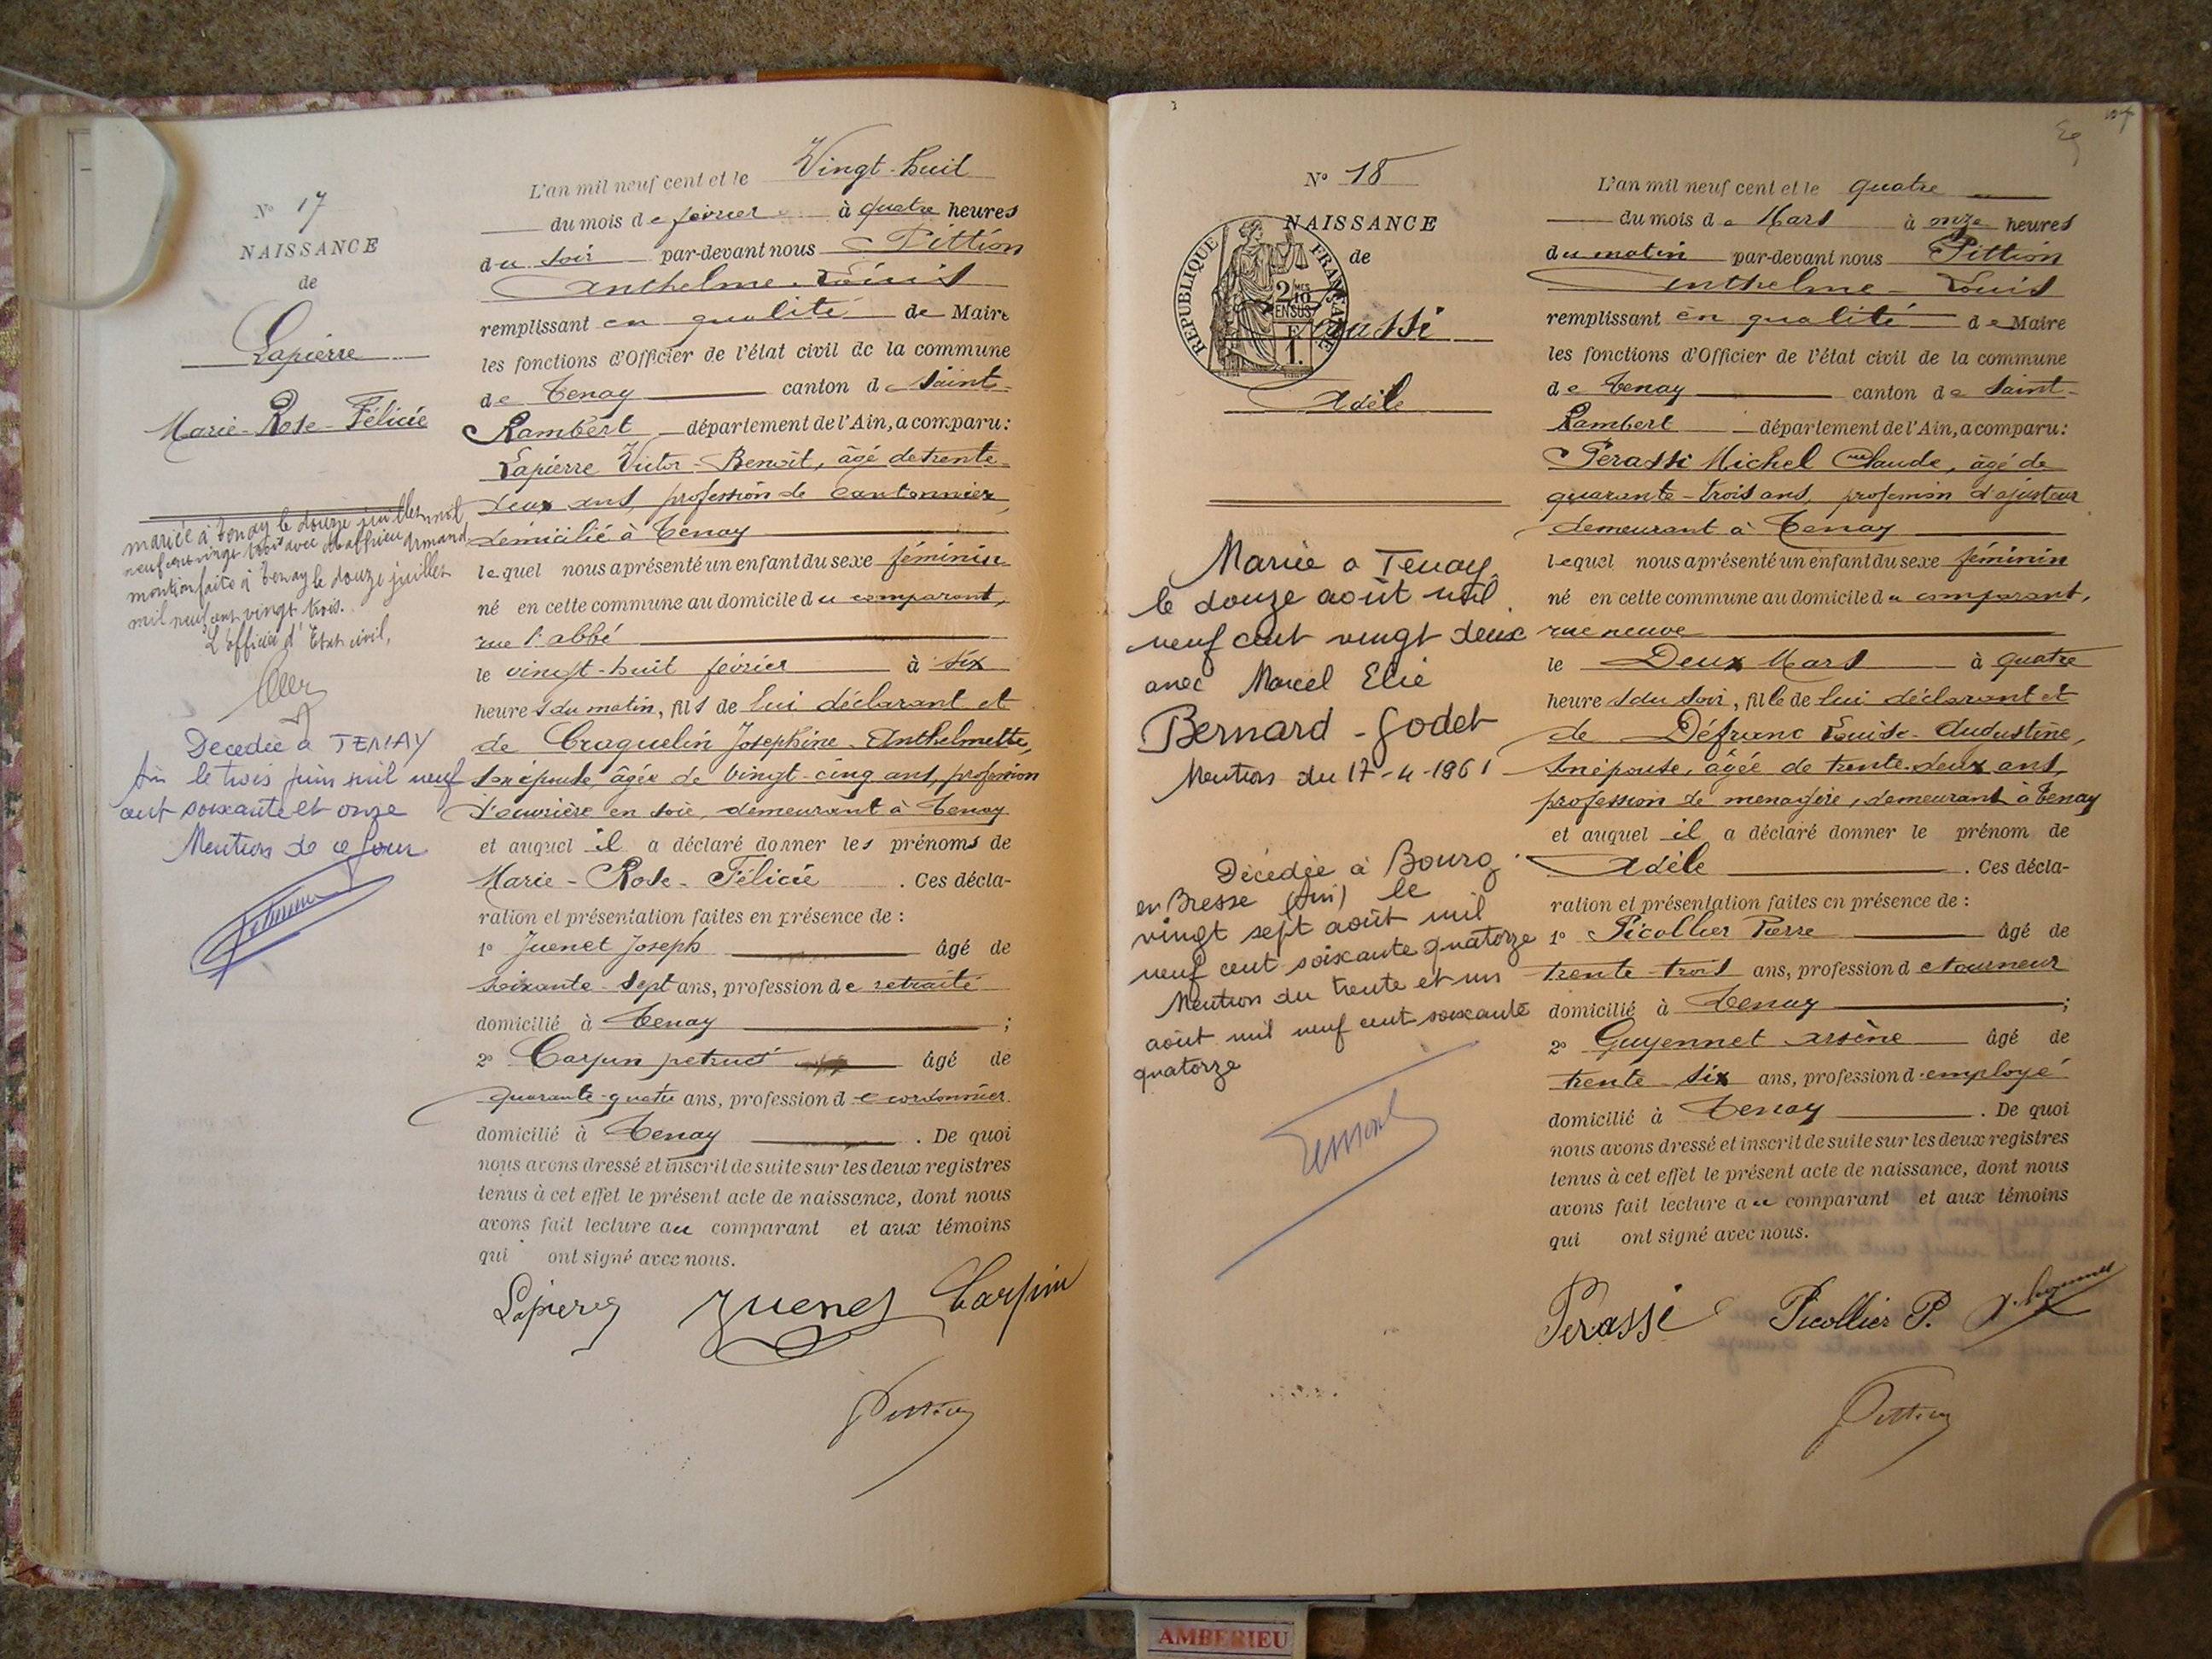 N° 17
NAISSANCE
de
Lapierre
Marie-Rose-Félicie
mariée à Tenay le douze juillet mil
neuf cent vingt trois avec Mathieu Armand
mention faite à Tenay le douze juillet
mil neuf cent vingt trois.
L'officier d'Etat civil,
Décédée à TENAY
Ain le trois juin mil neuf
cent soixante et onze
Mention de ce jour
L'an mil neuf cent et le Vingt-huit
du mois de février à quatre heures
du soir par-devant nous Pittion
Anthelme-Louis
remplissant en qualité de Maire
les fonctions d'Officier de l'état civil de la commune
de Tenay canton de Saint-
Rambert département de l'Ain, a comparu:
Lapierre Victor-Benoît, âgé de trente-
deux ans, profession de cantonnier,
domicilié à Tenay
lequel nous a présenté un enfant du sexe féminin
né en cette commune au domicile du comparant,
rue l'abbé
le vingt-huit février à six
heures du matin, fils de lui déclarant et
de Craquelin Joséphine-Anthelmette,
son épouse, âgée de vingt-cinq ans, profession
d'ouvrière en soie, demeurant à Tenay
et auquel il a déclaré donner les prénoms de
Marie-Rose-Félicie. Ces décla-
ration et présentation faites en présence de :
1° Juenet Joseph âgé de
soixante-sept ans, profession de retraité
domicilié à Tenay ;
2° Carpin âgé de
quarante-quatre ans, profession de cordonnier
domicilié à Tenay. De quoi
nous avons dressé et inscrit de suite sur les deux registres
tenus à cet effet le présent acte de naissance, dont nous
avons fait lecture au comparant et aux témoins
qui ont signé avec nous.
Lapierre Juenet Carpin
Pittion
N° 18
NAISSANCE
de
RÉPUBLIQUE FRANÇAISE
2 MES
10
EN SUS
F
1.
Perassi
Adèle
Mariée à Tenay
le douze août mil
neuf cent vingt deux
avec Marcel Elie
Bernard-Godet
Mention du 17-4-1961
Décédée à Bourg
en Bresse (Ain) le
vingt sept août mil
neuf cent soixante quatorze
Mention du trente et un
août mil neuf cent soixante
quatorze
L'an mil neuf cent et le quatre
du mois de Mars à onze heures
du matin par-devant nous Pittion
Anthelme-Louis
remplissant en qualité de Maire
les fonctions d'Officier de l'état civil de la commune
de Tenay canton de Saint-
Rambert département de l'Ain, a comparu:
Perassi Michel Claude, âgé de
quarante-trois ans, profession d'ajusteur
demeurant à Tenay
lequel nous a présenté un enfant du sexe féminin
né en cette commune au domicile du comparant,
rue neuve
le Deux Mars à quatre
heures du soir, fille de lui déclarant et
de Défranc Louise-Augustine,
son épouse, âgée de trente-deux ans,
profession de menagère, demeurant à Tenay
et auquel il a déclaré donner le prénom de
Adèle. Ces décla-
ration et présentation faites en présence de :
1° Picollier Pierre âgé de
trente-trois ans, profession de tourneur
domicilié à Tenay ;
2° Guyennet Arsène âgé de
trente-six ans, profession d'employé
domicilié à Tenay. De quoi
nous avons dressé et inscrit de suite sur les deux registres
tenus à cet effet le présent acte de naissance, dont nous
avons fait lecture au comparant et aux témoins
qui ont signé avec nous.
Perassi Picollier P.
Pittion
AMBERIEU